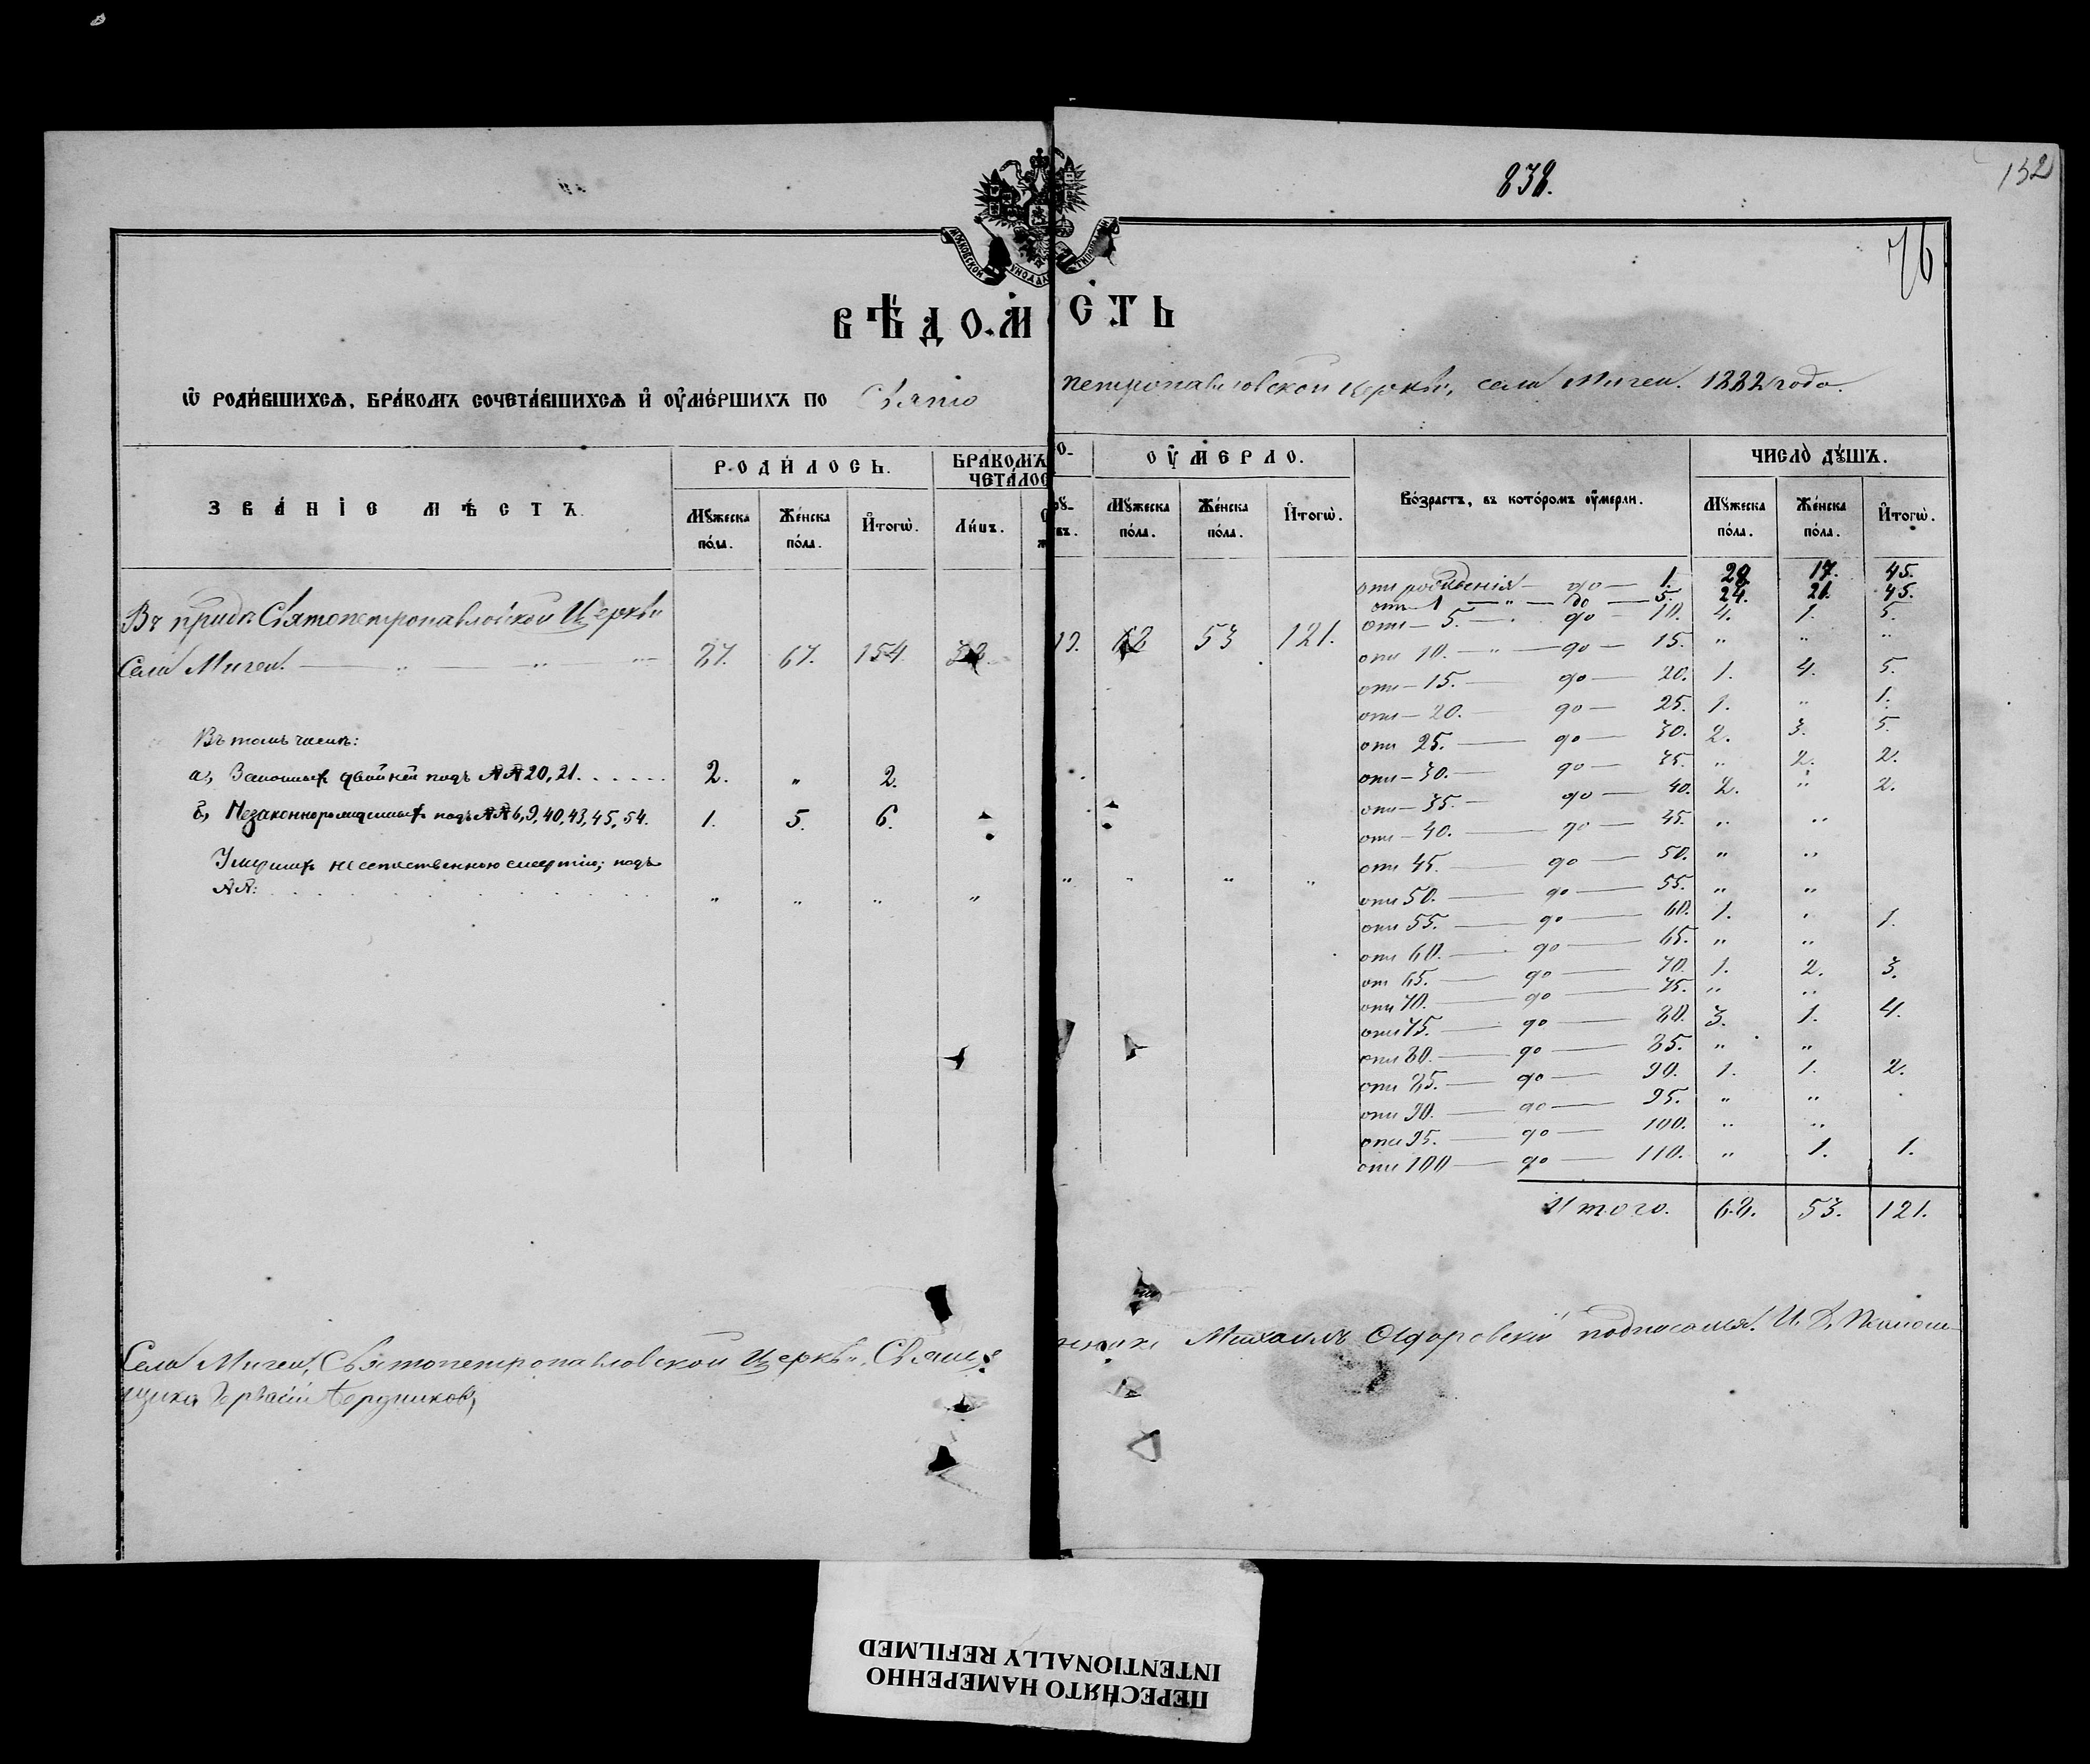 838.
132
76
МОСКОВСКОЙ СѴНОДАЛ ТИПОГРАФІИ
ВѢДОМОСТЬ
Ѡ РОДИВШИХСѦ, БРАКОМЪ СОЧЕТАВШИХСѦ И ОУМЕРШИХЪ ПО Свято петропавловской церкви, села Мигеи. 1882 года.
ЗВАНІЕ МѢСТЪ.
РОДИЛОСЬ.
БРАКОМЪ СО-
ЧЕТАЛОС
ОУМЕРЛО.
Возрастъ, въ которомъ оумерли.
ЧИСЛО ДꙊШЪ.
Мꙋжеска пола.
Женска пола.
Итогѡ.
Лицъ.
Мꙋжеска пола.
Женска пола.
Итогѡ.
Мꙋжеска пола.
Женска пола.
Итогѡ.
Въ приходѣ Святопетропавловской Церкви
Села Мигеи. 87. 67. 154. 53 121.
Въ томъ числѣ:
а, двойней подъ №№ 20, 21. 2. " 2.
б, Незаконнорожденныхъ подъ №№ 6, 9, 40, 43, 45, 54. 1. 5. 6.
Умершихъ неестественною смертію, подъ
№№: " " " " " " " "
отъ рожденія до 1. 28. 17. 45.
отъ 1 " до 5. 24. 21. 45.
отъ 5. до 10. 4. 1. 5.
отъ 10. " до 15. " " "
отъ 15. до 20. 1. 4. 5.
отъ 20. до 25. 1. " 1.
отъ 25. до 30. 2. 3. 5.
отъ 30. до 35. " 2. 2.
отъ 35. до 40. 2. " 2.
отъ 40. до 45. " "
отъ 45. до 50. " "
отъ 50. до 55. " "
отъ 55. до 60. 1. " 1.
отъ 60. до 65. " "
отъ 65. до 70. 1. 2. 3.
отъ 70. до 75. " "
отъ 75. до 80. 3. 1. 4.
отъ 80. до 85. " "
отъ 85. до 90. 1. 1. 2.
отъ 90. до 95. " "
отъ 95. до 100. " "
отъ 100 до 110. " 1. 1.
Итого. 68. 53. 121.
Села Мигеи, Святопетропавловской Церкви, Священникъ Михаилъ подписался. И. Д. Псаломщика